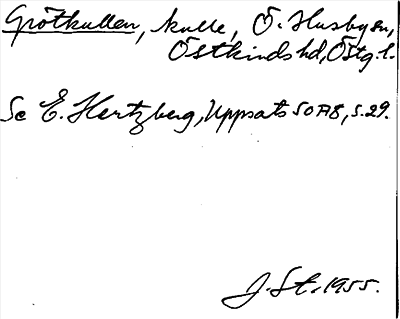 Grötkullen, kulle, Ö. Husby sn,
Östkinds hd, Östg. l.
Se E. Hertzberg, Uppsats SOÄB, s. 29.
J. St. 1955.